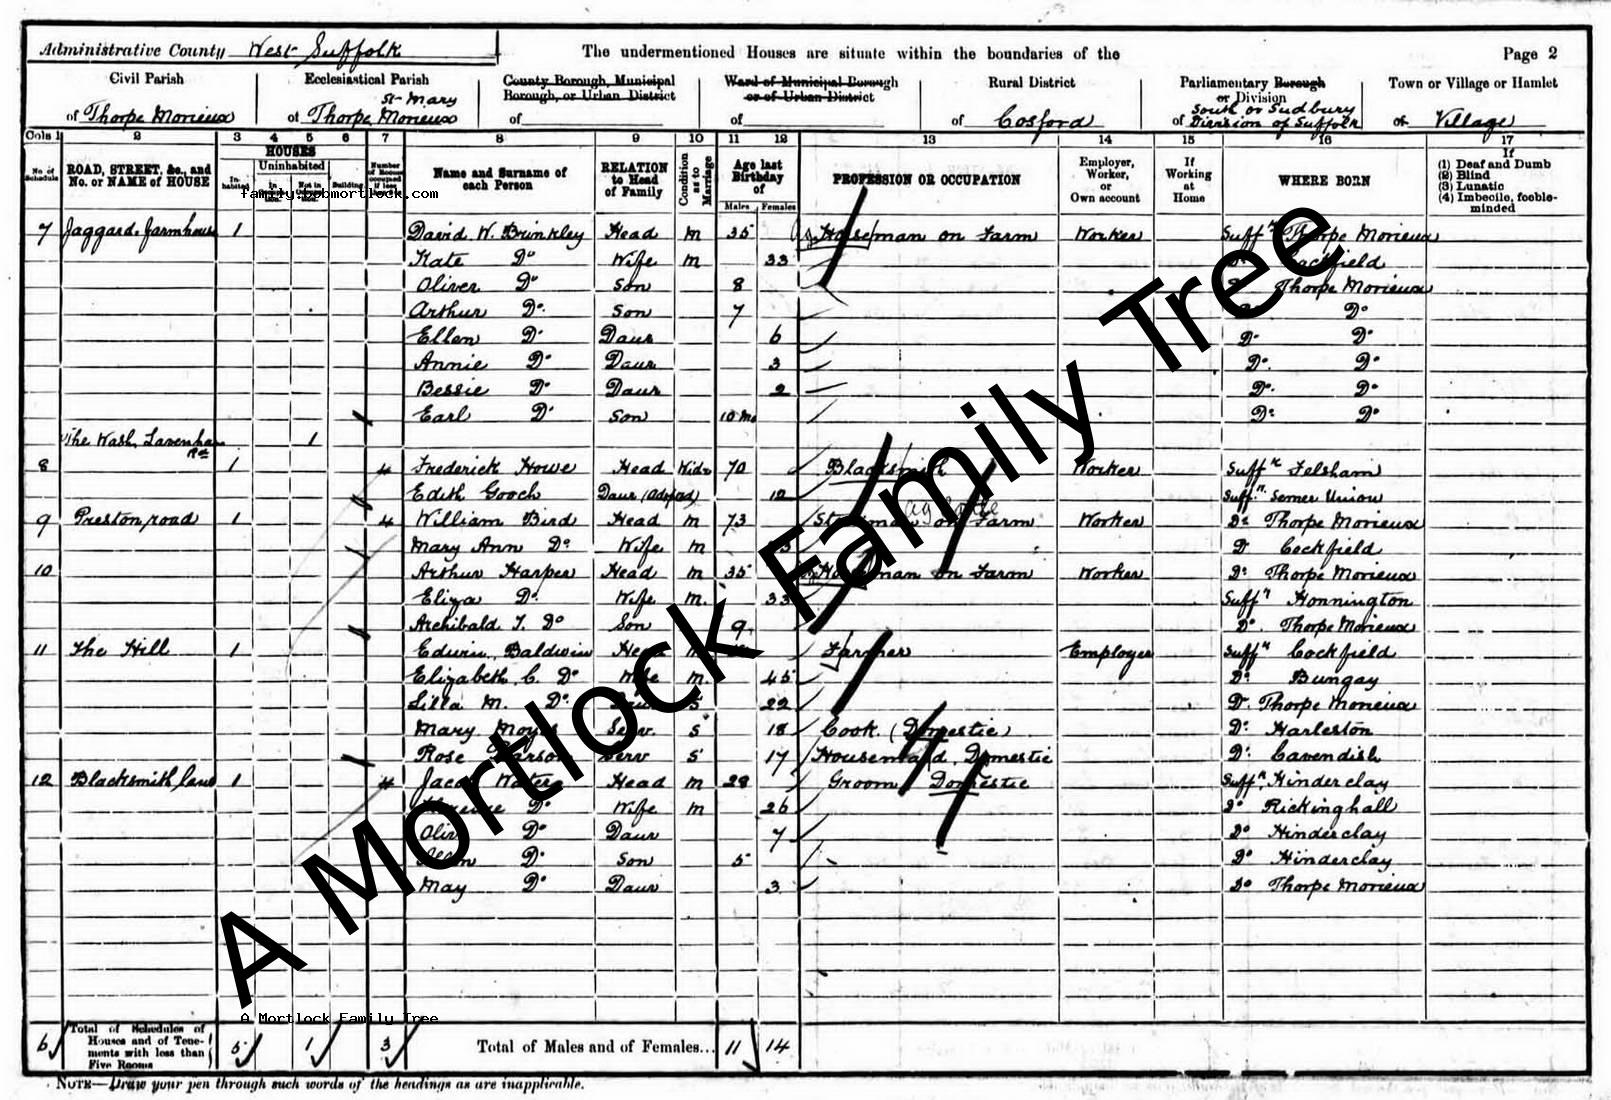 Administrative County West Suffolk
The undermentioned Houses are situate within the boundaries of the
Page 2
Civil Parish
of Thorpe Morieux
Ecclesiastical Parish
St Mary
of Thorpe Morieux
County Borough, Municipal
Borough, or Urban District
of
Ward of Municipal Borough
or of Urban District
of
Rural District
of Cosford
Parliamentary Borough
or Division
South or Sudbury
of Division of Suffolk
Town or Village or Hamlet
of Village
Cols 1 2 3 4 5 6 7 8 9 10 11 12 13 14 15 16 17
No. of Schedule
ROAD, STREET, &c., and No. or NAME of HOUSE
HOUSES
Inhabited
Uninhabited
Building
Name and Surname of each Person
RELATION to Head of Family
Condition as to Marriage
Age last Birthday of
Males Females
PROFESSION OR OCCUPATION
Employer, Worker, or Own account
If Working at Home
WHERE BORN
If
(1) Deaf and Dumb
(2) Blind
(3) Lunatic
(4) Imbecile, feeble-minded
family.robmortlock.com
7 Jaggard. farmhouse 1 David W. Brinkley Head M 35 Horseman on Farm Worker Suffk Thorpe Morieux
Kate Do Wife M 33 Cockfield
Oliver Do Son 8 Thorpe Morieux
Arthur Do Son 7 Do
Ellen Do Daur 6 Do Do
Annie Do Daur 3 Do Do
Bessie Do Daur 2 Do Do
Earl Do Son 10 Mo Do Do
The Wash, Lavenham Rd 1
8 1 4 Frederick Howe Head Widr 70 Blacksmith Worker Suffk Felsham
Edith Gooch Daur (Adopted) 12 Suffk Semer Union
9 Preston road 1 4 William Bird Head M 73 Stockman on Farm Worker Do Thorpe Morieux
Mary Ann Do Wife M Do Cockfield
10 Arthur Harper Head M 35 Horseman on Farm Worker Do Thorpe Morieux
Eliza Do Wife M 33 Suffk Honnington
Archibald T. Do Son 9 Do Thorpe Morieux
11 The Hill 1 Edwin Baldwin Head M Farmer Employer Suffk Cockfield
Elizabeth C. Do Wife M 45 Do Bungay
Lilla M. Do Daur S 22 Do Thorpe Morieux
Mary Serv S 18 Cook (Domestic) Do Harleston
Rose Parson Serv S 17 Housemaid, Domestic Do Cavendish
12 Blacksmith lane 1 4 Jacob Head M 28 Groom Domestic Suffk Hinderclay
Do Wife M 26 Do Rickinghall
Do Daur 7 Do Hinderclay
Do Son 5 Do Hinderclay
May Do Daur 3 Do Thorpe Morieux
A Mortlock Family Tree
A Mortlock Family Tree
6 Total of Schedules of Houses and of Tenements with less than Five Rooms 5 1 3 Total of Males and of Females... 11 14
NOTE—Draw your pen through such words of the headings as are inapplicable.